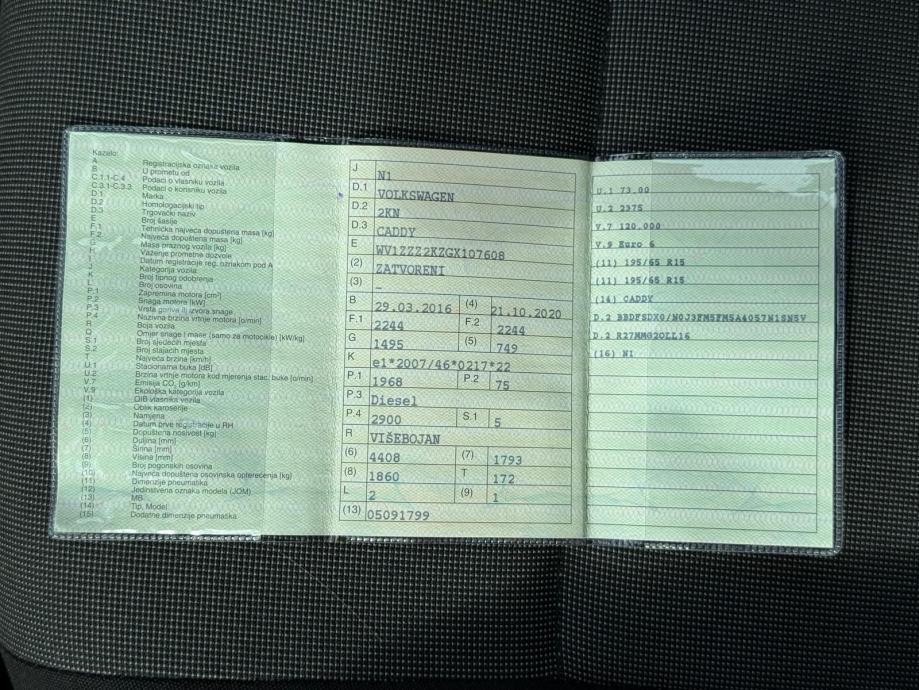 Kazalo:
A Registracijska oznaka vozila
B U prometu od
C.1.1-C.4 Podaci o vlasniku vozila
C.3.1-C.3.3 Podaci o korisniku vozila
D.1 Marka
D.2 Homologacijski tip
D.3 Trgovački naziv
E Broj šasije
F.1 Tehnička najveća dopuštena masa [kg]
F.2 Najveća dopuštena masa [kg]
G Masa praznog vozila [kg]
H Važenje prometne dozvole
I Datum registracije reg. oznakom pod A
J Kategorija vozila
K Broj tipnog odobrenja
L Broj osovina
P.1 Zapremina motora [cm³]
P.2 Snaga motora [kW]
P.3 Vrsta goriva ili izvora snage
P.4 Nazivna brzina vrtnje motora [o/min]
R Boja vozila
Q Omjer snage i mase (samo za motocikle) [kW/kg]
S.1 Broj sjedećih mjesta
S.2 Broj stajaćih mjesta
T Najveća brzina [km/h]
U.1 Stacionarna buka [dB]
U.2 Brzina vrtnje motora kod mjerenja stac. buke [o/min]
V.7 Emisija CO₂ [g/km]
V.9 Ekološka kategorija vozila
(1) OIB vlasnika vozila
(2) Oblik karoserije
(3) Namjena
(4) Datum prve registracije u RH
(5) Dopuštena nosivost [kg]
(6) Duljina [mm]
(7) Širina [mm]
(8) Visina [mm]
(9) Broj pogonskih osovina
(10) Najveća dopuštena osovinska opterećenja [kg]
(11) Dimenzije pneumatika
(12) Jedinstvena oznaka modela (JOM)
(13) MB
(14) Tip, Model
(15) Dodatne dimenzije pneumatika
J N1
D.1 VOLKSWAGEN
D.2 2KN
D.3 CADDY
E WV1ZZZ2KZGX107608
(2) ZATVORENI
(3) –
B 29.03.2016 (4) 21.10.2020
F.1 2244 F.2 2244
G 1495 (5) 749
K e1*2007/46*0217*22
P.1 1968 P.2 75
P.3 Diesel
P.4 2900 S.1 5
R VIŠEBOJAN
(6) 4408 (7) 1793
(8) 1860 T 172
L 2 (9) 1
(13) 05091799
U.1 73.00
U.2 2375
V.7 120.000
V.9 Euro 6
(11) 195/65 R15
(11) 195/65 R15
(14) CADDY
D.2 BBDFSDX0/N0J3FM5FM5A4057N1SN5V
D.2 R27MMG2OLL16
(16) N1